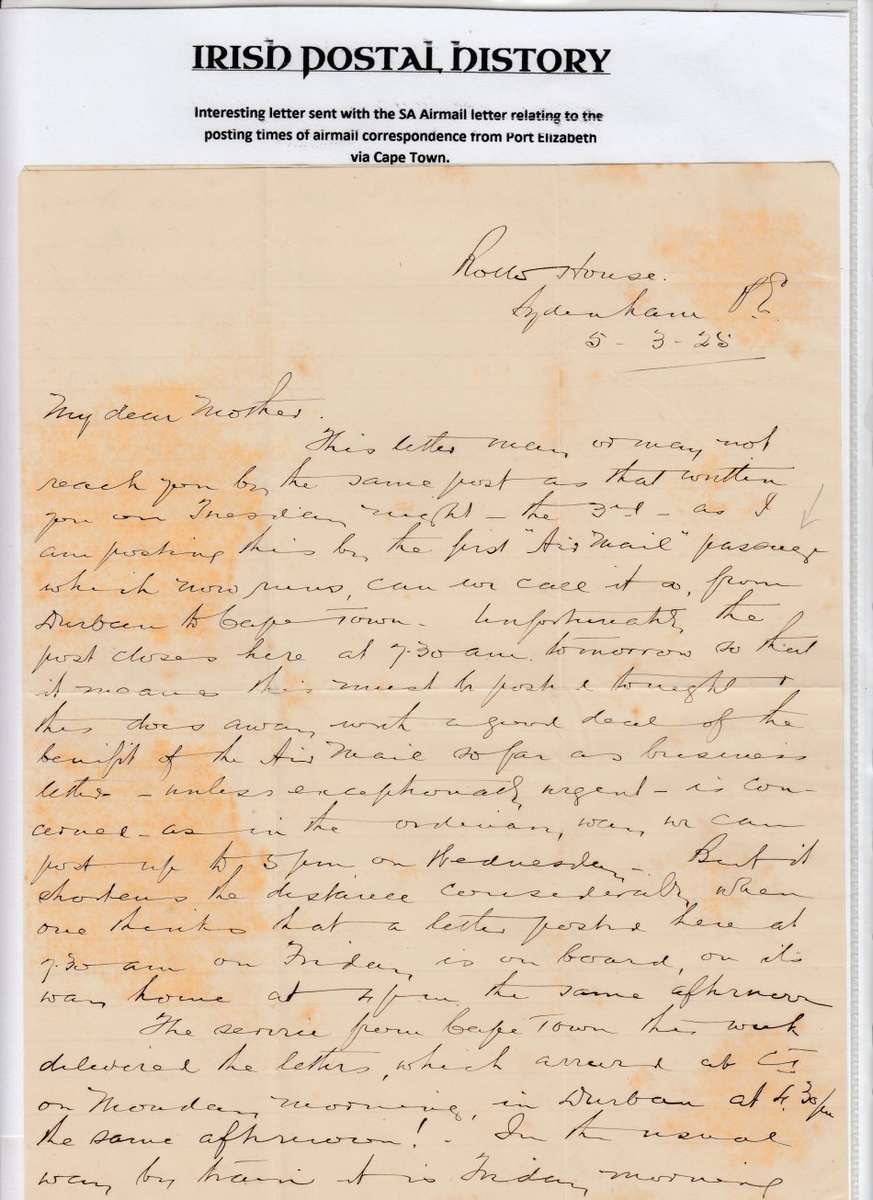 IRISH POSTAL HISTORY
Interesting letter sent with the SA Airmail letter relating to the
posting times of airmail correspondence from Port Elizabeth
via Cape Town.
House.
Sydenham P.E.
5 - 3 - 25
My dear Mother.
This letter may or may not
reach you by the same post as that written
you on Tuesday night - the 3rd - as I
am posting this by the first "Air Mail" passage
which now runs, can we call it so, from
Durban to Cape Town. Unfortunately the
post closes here at 7.30 am. tomorrow so that
it means this must be posted tonight &
this does away with a good deal of the
benifit of the Air Mail so far as business
letters - unless exceptionally urgent - is con-
cerned - as in the ordinary way we can
post up to 5 pm on Wednesday. But it
shortens the distance considerably when
one thinks that a letter posted here at
7.30 am on Friday is on board, on its
way home at 4 pm. the same afternoon
The service from Cape Town this week
delivered the letters, which arrived at CT
on Monday morning, in Durban at 4.30 pm
the same afternoon! - In the usual
way by train it is Friday morning